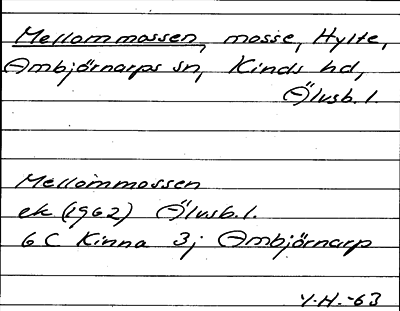 Mellommossen, mosse, Hylte,
Ambjörnarps sn, Kinds hd,
Älvsb. l.
Mellommossen
ek (1962) Älvsb. l.
6 C Kinna 3j Ambjörnarp
Y.H.-63